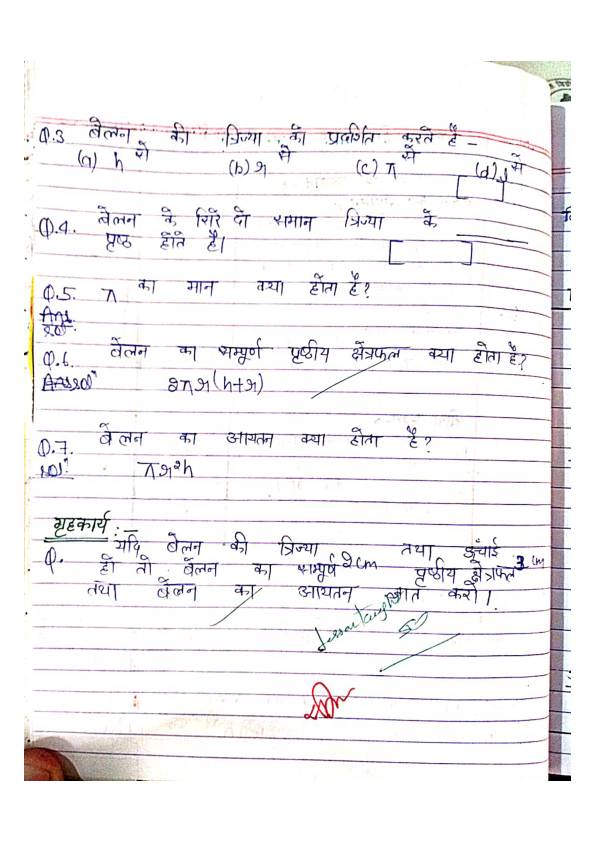 Q.3 बेलन की त्रिज्या को प्रदर्शित करते है -
(a) h से (b) r से (c) π से (d) से
Q.4. बेलन के सिरे दो समान त्रिज्या के ______
पृष्ठ होते है।
Q.5. π का मान क्या होता है?
Ans
Q.6. बेलन का सम्पूर्ण पृष्ठीय क्षेत्रफल क्या होता है?
2πr(h+r)
Q.7. बेलन का आयतन क्या होता है?
πr²h
गृहकार्य :-
Q. यदि बेलन की त्रिज्या 2cm तथा ऊंचाई 3 cm
हो तो बेलन का सम्पूर्ण पृष्ठीय क्षेत्रफल
तथा बेलन का आयतन ज्ञात करो।